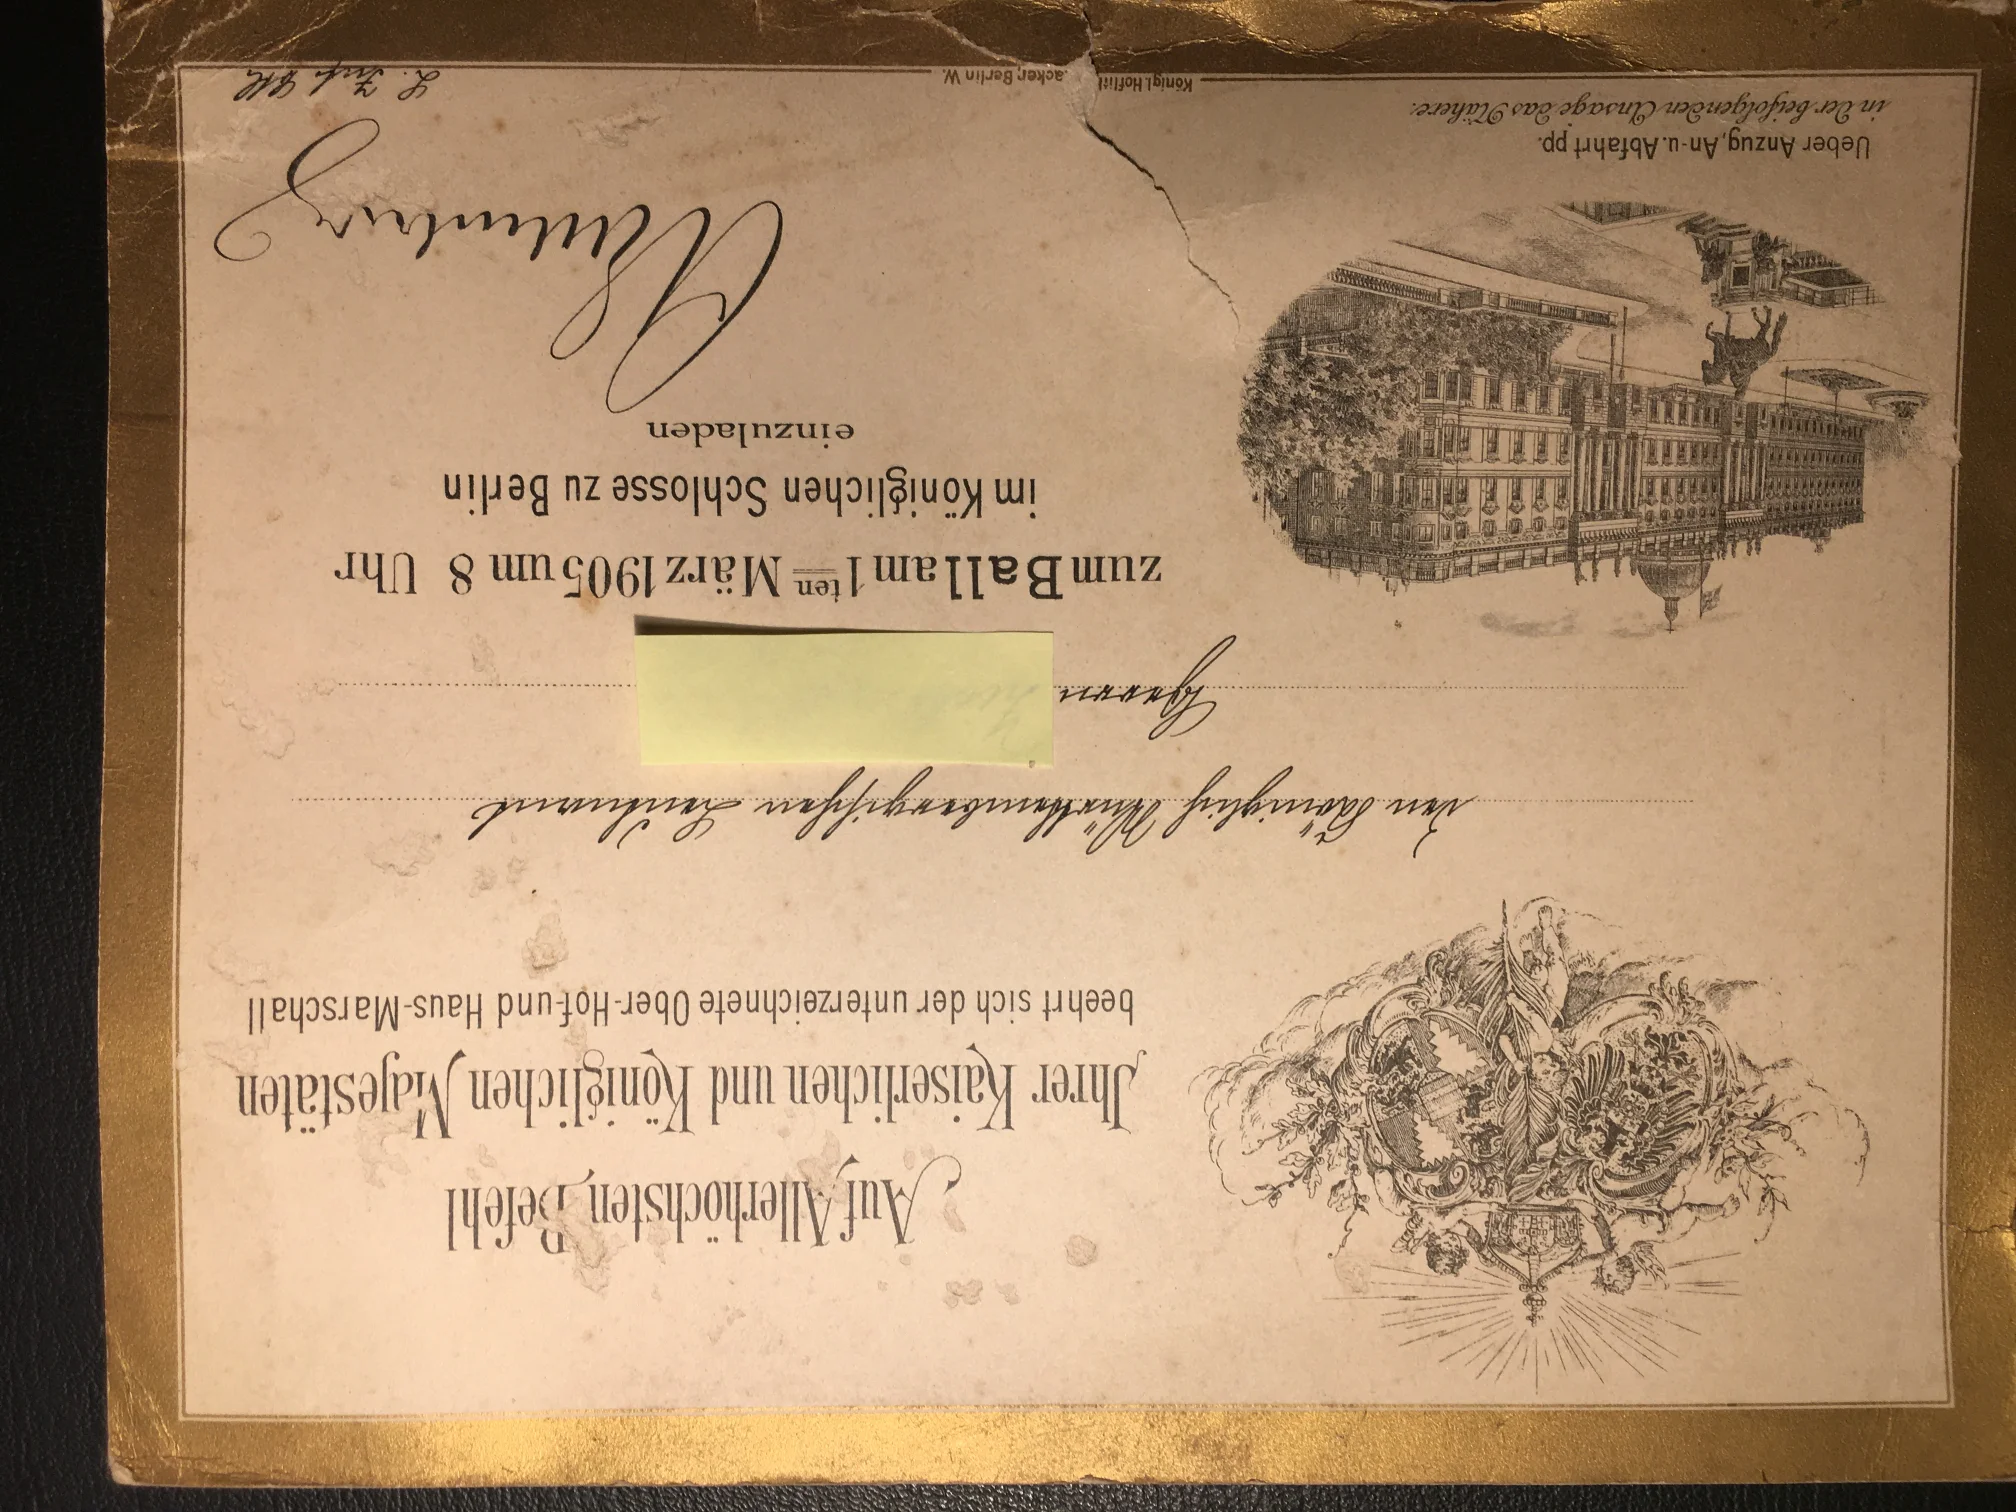 Auf Allerhöchsten Befehl
Ihrer Kaiserlichen und Königlichen Majestäten
beehrt sich der unterzeichnete Ober-Hof-und Haus-Marschall
den Königlich Württembergischen Leutnant
Herrn
zum Ball am 1ten März 1905 um 8 Uhr
im Königlichen Schlosse zu Berlin
einzuladen
AEulenburg
Ueber Anzug, An-u. Abfahrt pp.
in der beifolgenden Ansage das Nähere.
Königl. Hoflit
acker, Berlin W.